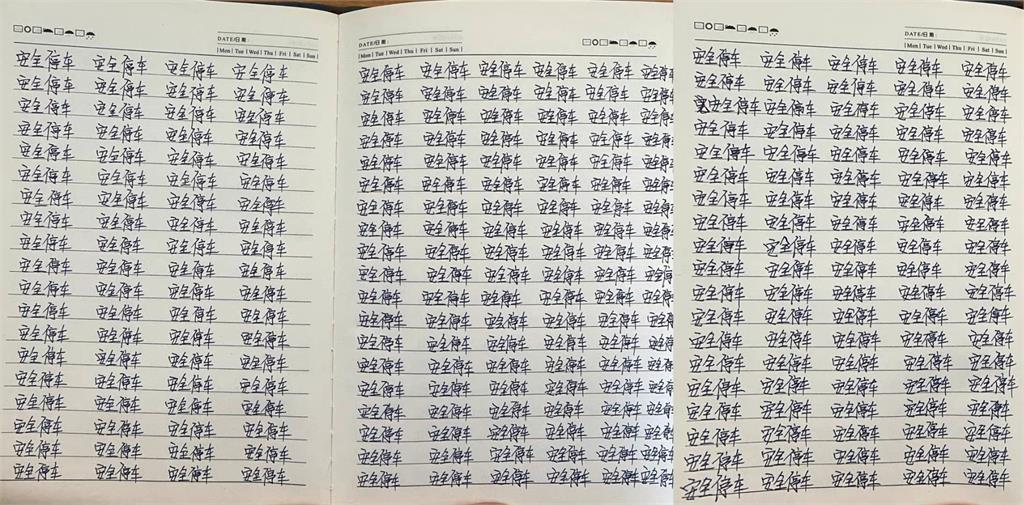 DATE/日期:
Mon | Tue | Wed | Thu | Fri | Sat | Sun
安全停车 安全停车 安全停车 安全停车
安全停车 安全停车 安全停车 安全停车
安全停车 安全停车 安全停车 安全停车
安全停车 安全停车 安全停车 安全停车
安全停车 安全停车 安全停车 安全停车
安全停车 安全停车 安全停车 安全停车
安全停车 安全停车 安全停车 安全停车
安全停车 安全停车 安全停车 安全停车
安全停车 安全停车 安全停车 安全停车
安全停车 安全停车 安全停车 安全停车
安全停车 安全停车 安全停车 安全停车
安全停车 安全停车 安全停车 安全停车
安全停车 安全停车 安全停车 安全停车
安全停车 安全停车 安全停车 安全停车
安全停车 安全停车 安全停车 安全停车
安全停车 安全停车 安全停车 安全停车
安全停车 安全停车 安全停车 安全停车
安全停车 安全停车 安全停车 安全停车
安全停车 安全停车 安全停车 安全停车
DATE/日期:
Mon | Tue | Wed | Thu | Fri | Sat | Sun
安全停车 安全停车 安全停车 安全停车 安全停车 安全停
安全停车 安全停车 安全停车 安全停车 安全停车 安全停
安全停车 安全停车 安全停车 安全停车 安全停车 安全停
安全停车 安全停车 安全停车 安全停车 安全停车 安全停
安全停车 安全停车 安全停车 安全停车 安全停车 安全停
安全停车 安全停车 安全停车 安全停车 安全停车 安全停
安全停车 安全停车 安全停车 安全停车 安全停车 安全停
安全停车 安全停车 安全停车 安全停车 安全停车 安全停
安全停车 安全停车 安全停车 安全停车 安全停车 安全停
安全停车 安全停车 安全停车 安全停车 安全停车 安全停
安全停车 安全停车 安全停车 安全停车 安全停车 安全停
安全停车 安全停车 安全停车 安全停车 安全停车 安全停
安全停车 安全停车 安全停车 安全停车 安全停车 安全停
安全停车 安全停车 安全停车 安全停车 安全停车 安全停
安全停车 安全停车 安全停车 安全停车 安全停车 安全停
安全停车 安全停车 安全停车 安全停车 安全停车 安全停
安全停车 安全停车 安全停车 安全停车 安全停车 安全停
安全停车 安全停车 安全停车 安全停车 安全停车 安全停
安全停车 安全停车 安全停车 安全停车 安全停车 安全停
DATE/日期:
Mon | Tue | Wed | Thu | Fri | Sat | Sun
安全停车 安全停车 安全停车 安全停车 安全停车
安全停车 安全停车 安全停车 安全停车 安全停车
安全停车 安全停车 安全停车 安全停车 安全停车
安全停车 安全停车 安全停车 安全停车 安全停车
安全停车 安全停车 安全停车 安全停车 安全停车
安全停车 安全停车 安全停车 安全停车 安全停车
安全停车 安全停车 安全停车 安全停车 安全停车
安全停车 安全停车 安全停车 安全停车 安全停车
安全停车 安全停车 安全停车 安全停车 安全停车
安全停车 安全停车 安全停车 安全停车 安全停车
安全停车 安全停车 安全停车 安全停车 安全停车
安全停车 安全停车 安全停车 安全停车 安全停车
安全停车 安全停车 安全停车 安全停车 安全停车
安全停车 安全停车 安全停车 安全停车 安全停车
安全停车 安全停车 安全停车 安全停车 安全停车
安全停车 安全停车 安全停车 安全停车 安全停车
安全停车 安全停车 安全停车 安全停车 安全停车
安全停车 安全停车 安全停车 安全停车 安全停车
安全停车 安全停车 安全停车 安全停车 安全停车